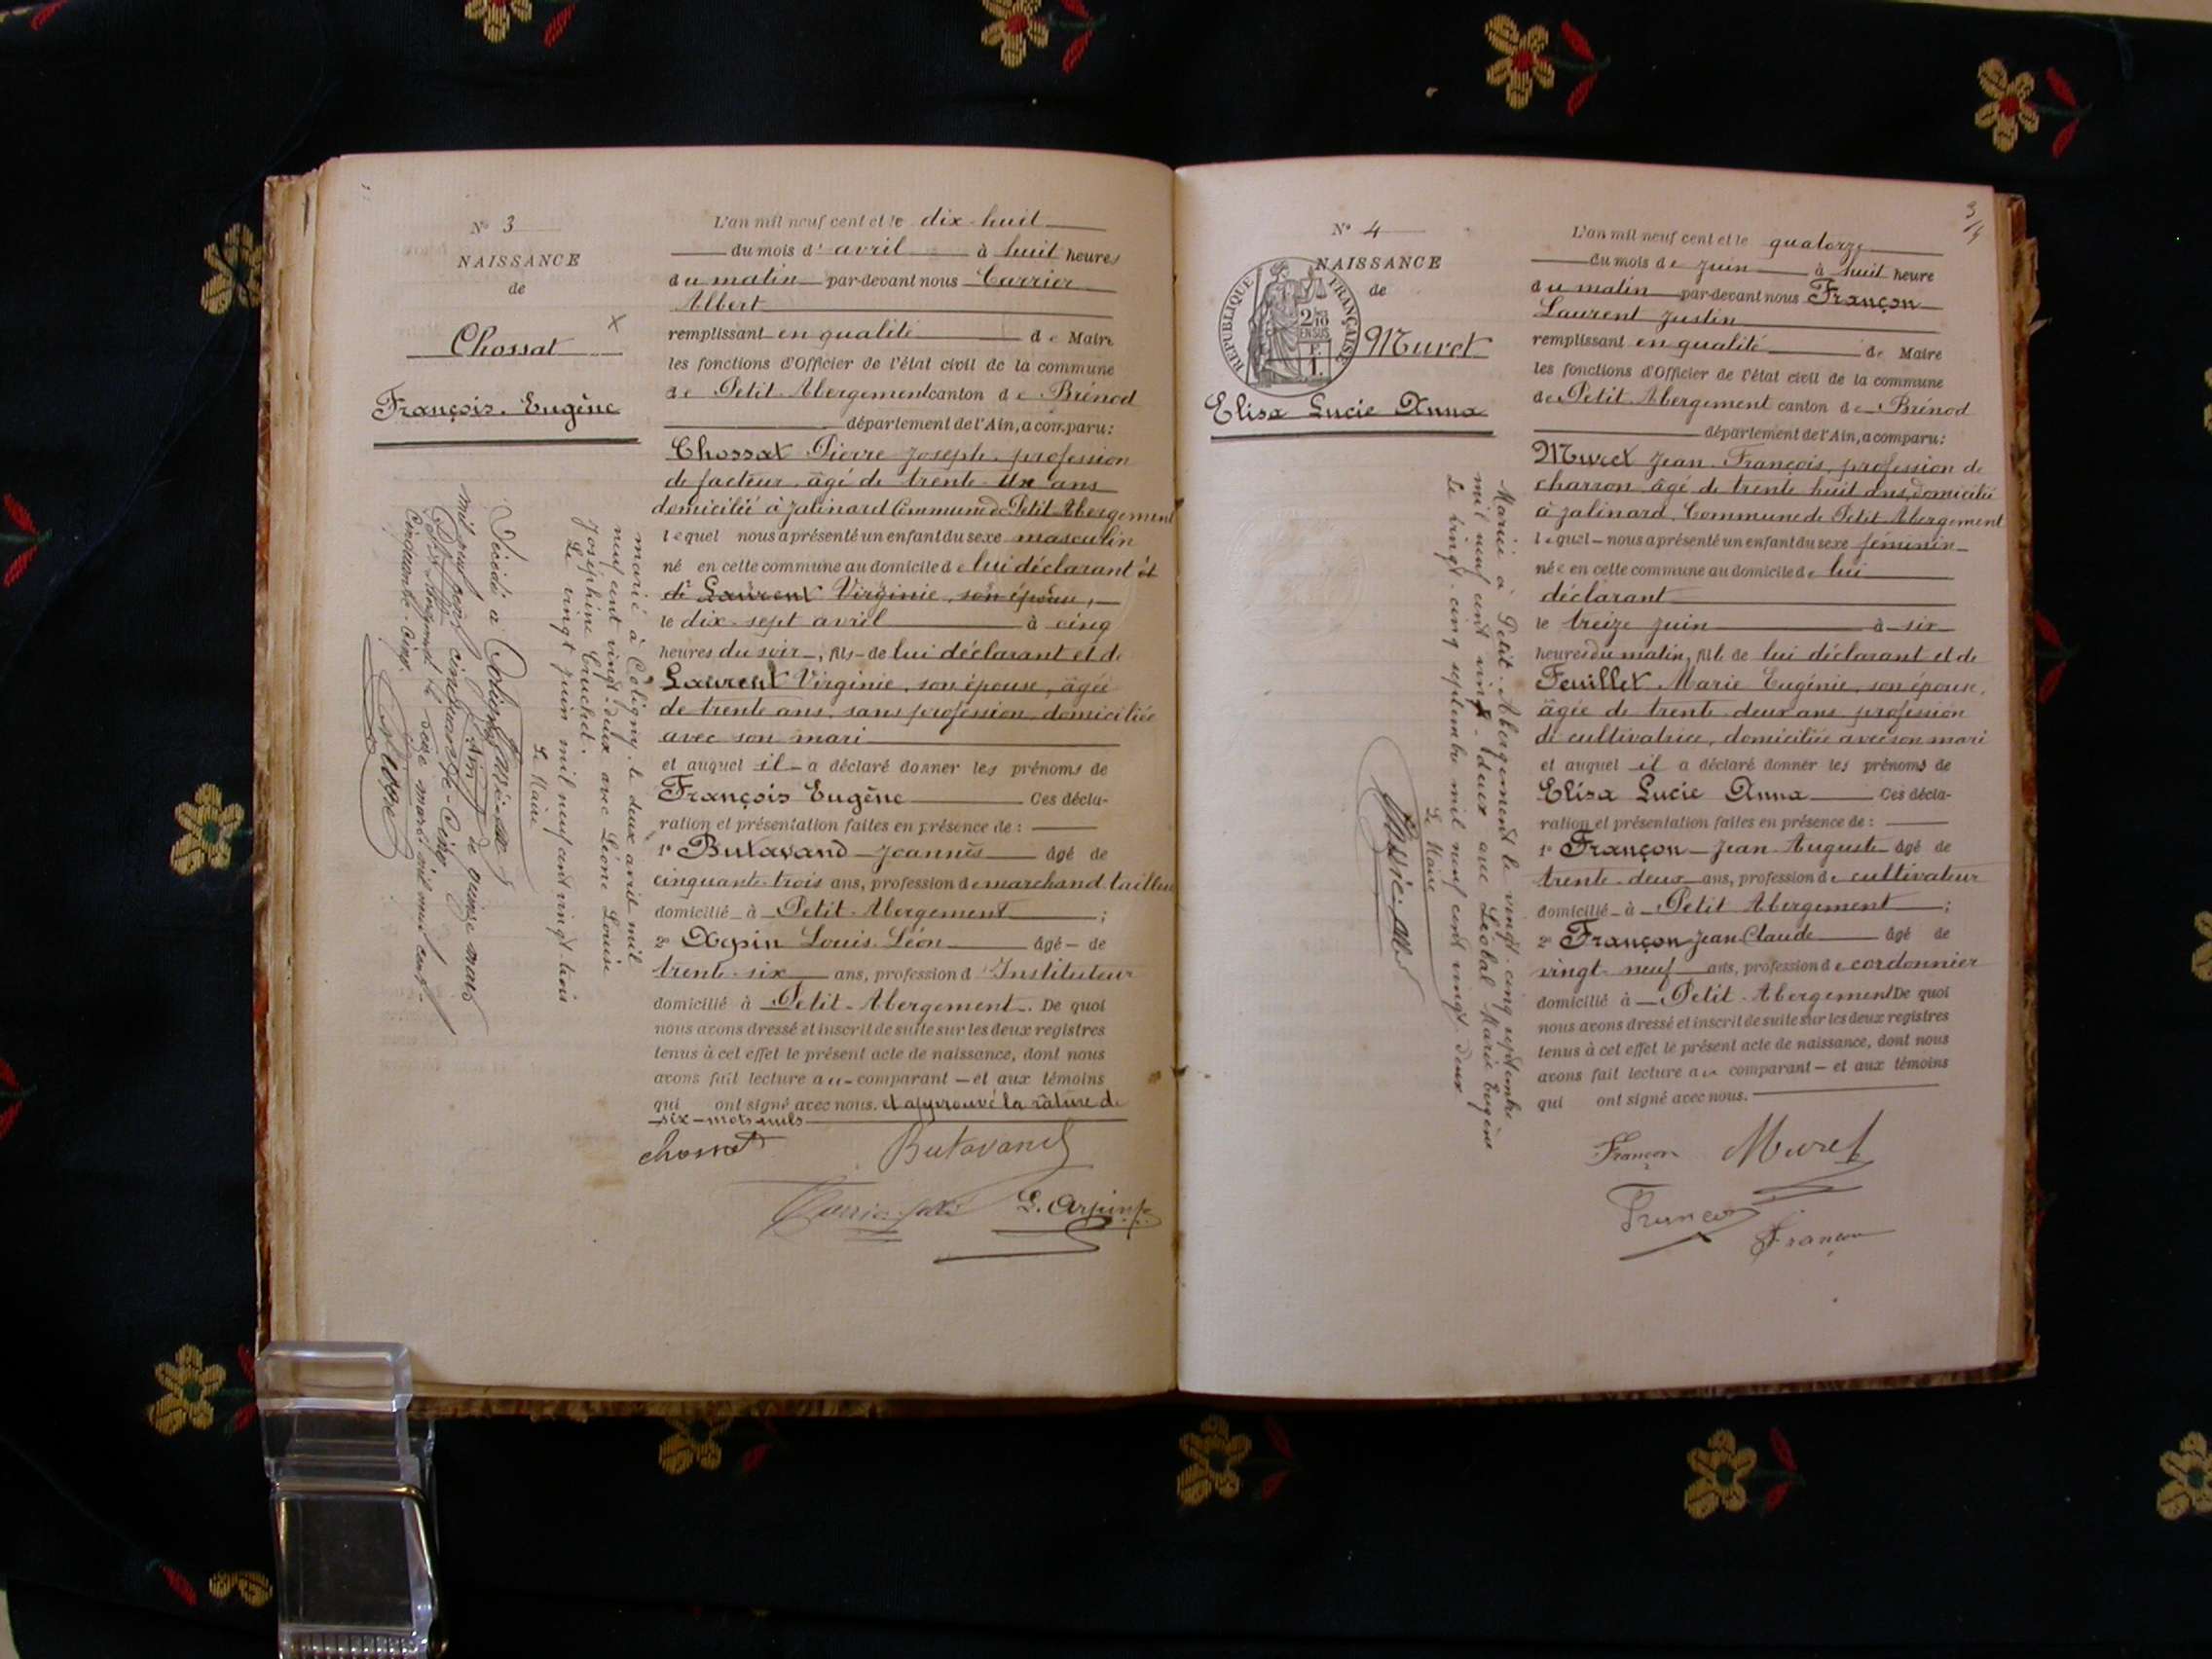 N° 3
NAISSANCE
de
Chossat
François. Eugène
marié à Coligny le deux avril mil
neuf cent vingt-deux avec Léone Louise
Joséphine Cruchet.
Le vingt juin mil neuf cent vingt-trois
Le Maire
Décédé à Coligny
(Ain) le quinze mars
mil neuf cent cinquante-cinq
Petit Abergement le seize mars mil neuf cent
cinquante-cinq.
L'an mil neuf cent et le dix-huit
du mois d'avril à huit heures
du matin par-devant nous Carrier
Albert
remplissant en qualité de Maire
les fonctions d'Officier de l'état civil de la commune
de Petit-Abergement canton de Brénod
département de l'Ain, a comparu:
Chossat Pierre Joseph, profession
de facteur âgé de trente-un ans
domicilié à Jalinard Commune de Petit Abergement
lequel nous a présenté un enfant du sexe masculin
né en cette commune au domicile de lui déclarant et
de Laurent Virginie, son épouse,
le dix-sept avril à cinq
heures du soir, fils de lui déclarant et de
Laurent Virginie, son épouse, âgée
de trente ans, sans profession, domiciliée
avec son mari
et auquel il a déclaré donner les prénoms de
François Eugène Ces décla-
ration et présentation faites en présence de :
1° Butavand Joannès âgé de
cinquante-trois ans, profession de marchand tailleur
domicilié à Petit-Abergement ;
2° Arpin Louis Léon âgé de
trente-six ans, profession d'Instituteur
domicilié à Petit-Abergement. De quoi
nous avons dressé et inscrit de suite sur les deux registres
tenus à cet effet le présent acte de naissance, dont nous
avons fait lecture au comparant et aux témoins
qui ont signé avec nous. et approuvé la râture de
six mots nuls
Chossat Butavand
L. Arpin
3
N° 4
NAISSANCE
de
REPUBLIQUE FRANÇAISE
2/10 EN SUS
F. 1.
Muret
Elisa Lucie Anna
Mariée à Petit-Abergement le vingt-cinq septembre
mil neuf cent vingt-deux avec Marie Eugène
Le vingt-cinq septembre mil neuf cent vingt-deux
Le Maire
L'an mil neuf cent et le quatorze
du mois de juin à huit heure
du matin par-devant nous Françon
Laurent Justin
remplissant en qualité de Maire
les fonctions d'Officier de l'état civil de la commune
de Petit-Abergement canton de Brénod
département de l'Ain, a comparu:
Muret Jean-François, profession de
charron âgé de trente huit ans, domicilié
à Jalinard, Commune de Petit-Abergement
lequel nous a présenté un enfant du sexe féminin
née en cette commune au domicile de lui
déclarant
le treize juin à six
heures du matin, fille de lui déclarant et de
Feuillet Marie Eugénie, son épouse,
âgée de trente-deux ans profession
de cultivatrice, domiciliée avec son mari
et auquel il a déclaré donner les prénoms de
Elisa Lucie Anna Ces décla-
ration et présentation faites en présence de :
1° Françon Jean-Auguste âgé de
trente-deux ans, profession de cultivateur
domicilié à Petit Abergement ;
2° Françon Jean Claude âgé de
vingt-neuf ans, profession de cordonnier
domicilié à Petit-Abergement De quoi
nous avons dressé et inscrit de suite sur les deux registres
tenus à cet effet le présent acte de naissance, dont nous
avons fait lecture au comparant et aux témoins
qui ont signé avec nous.
Françon Muret
Françon
Françon